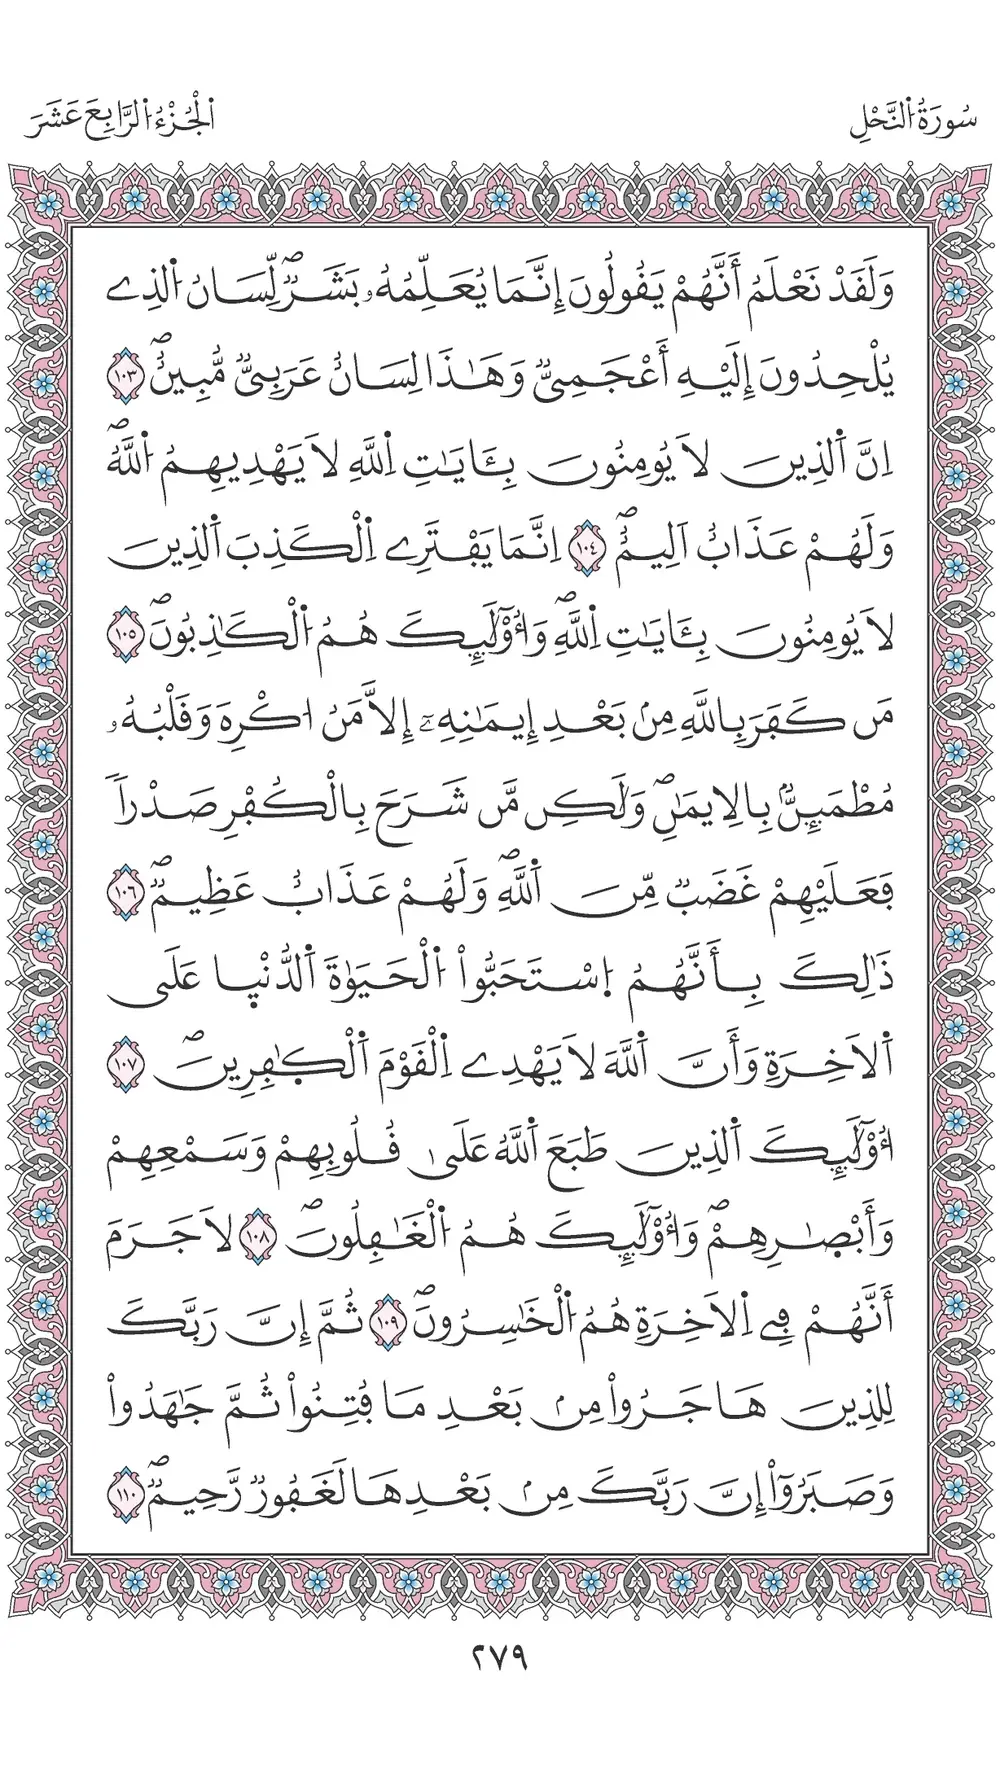 سُورَةُ النَّحْلِ
الْجُزْءُ الرَّابِعَ عَشَرَ
وَلَقَدْ نَعْلَمُ أَنَّهُمْ يَقُولُونَ إِنَّمَا يُعَلِّمُهُۥ بَشَرٞۖ لِّسَانُ اُ۬لذِے
يُلْحِدُونَ إِلَيْهِ أَعْجَمِيّٞ وَهَٰذَا لِسَانٌ عَرَبِيّٞ مُّبِينٌۖ ١٠٣
اِنَّ اَ۬لذِينَ لَا يُومِنُونَ بِـَٔايَٰتِ اِ۬للَّهِ لَا يَهْدِيهِمُ اُ۬للَّهُۖ
وَلَهُمْ عَذَابٌ اَلِيمٌۖ ١٠٤ اِنَّمَا يَفْتَرِے اِ۬لْكَذِبَ اَ۬لذِينَ
لَا يُومِنُونَ بِـَٔايَٰتِ اِ۬للَّهِۖ وَأُوْلَٰٓئِكَ هُمُ اُ۬لْكَٰذِبُونَۖ ١٠٥
مَن كَفَرَ بِاللَّهِ مِنۢ بَعْدِ إِيمَٰنِهِۦٓ إِلَّا مَنُ ا۟كْرِهَ وَقَلْبُهُۥ
مُطْمَئِنُّۢ بِالِايمَٰنِۖ وَلَٰكِن مَّن شَرَحَ بِالْكُفْرِ صَدْراٗ
فَعَلَيْهِمْ غَضَبٞ مِّنَ اَ۬للَّهِۖ وَلَهُمْ عَذَابٌ عَظِيمٞۖ ١٠٦
ذَٰلِكَ بِأَنَّهُمُ اُ۪سْتَحَبُّواْ اُ۬لْحَيَوٰةَ اَ۬لدُّنْي۪ا عَلَى
اَ۬لَاخِرَةِ وَأَنَّ اَ۬للَّهَ لَا يَهْدِے اِ۬لْقَوْمَ اَ۬لْكٰ۪فِرِينَۖ ١٠٧
أُوْلَٰٓئِكَ اَ۬لذِينَ طَبَعَ اَ۬للَّهُ عَلَىٰ قُلُوبِهِمْ وَسَمْعِهِمْ
وَأَبْصٰ۪رِهِمْۖ وَأُوْلَٰٓئِكَ هُمُ اُ۬لْغَٰفِلُونَۖ ١٠٨ لَا جَرَمَ
أَنَّهُمْ فِے اِ۬لَاخِرَةِ هُمُ اُ۬لْخَٰسِرُونَۖ ١٠٩ ثُمَّ إِنَّ رَبَّكَ
لِلذِينَ هَاجَرُواْ مِنۢ بَعْدِ مَا فُتِنُواْ ثُمَّ جَٰهَدُواْ
وَصَبَرُوٓاْ إِنَّ رَبَّكَ مِنۢ بَعْدِهَا لَغَفُورٞ رَّحِيمٞۖ ١١٠
٢٧٩